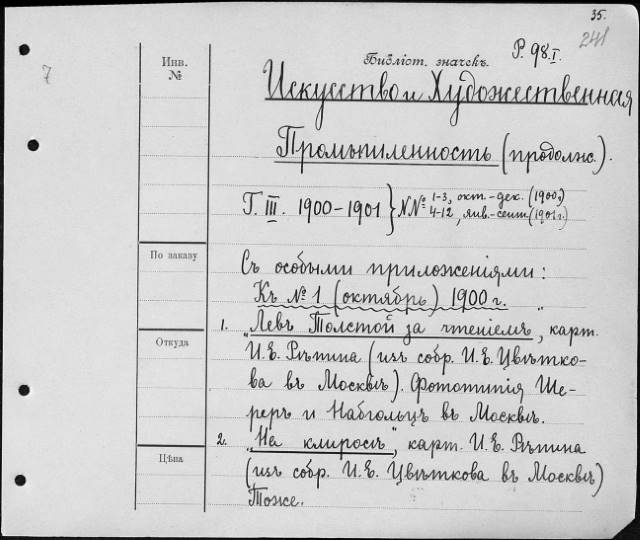 35.
241
7
Инв.
№
Библіот. значекъ.
Р. 98.I.
Искусство и Художественная
Промышленность (продолж.).
Г. III. 1900-1901 } №№ 1-3, окт.-дек. (1900г.)
4-12, янв.-сент. (1901 г.)
По заказу
Съ особыми приложеніями:
Къ № 1 (октябрь) 1900 г.
1. „Левъ Толстой за чтеніемъ", карт.
Откуда
И. Е. Рѣпина (изъ собр. И. Е. Цвѣтко-
ва въ Москвѣ). Фототипія Ше-
реръ и Набгольцъ въ Москвѣ.
2. „На клиросѣ", карт. И. Е. Рѣпина
Цѣна
(изъ собр. И. Е. Цвѣткова въ Москвѣ)
Тоже.